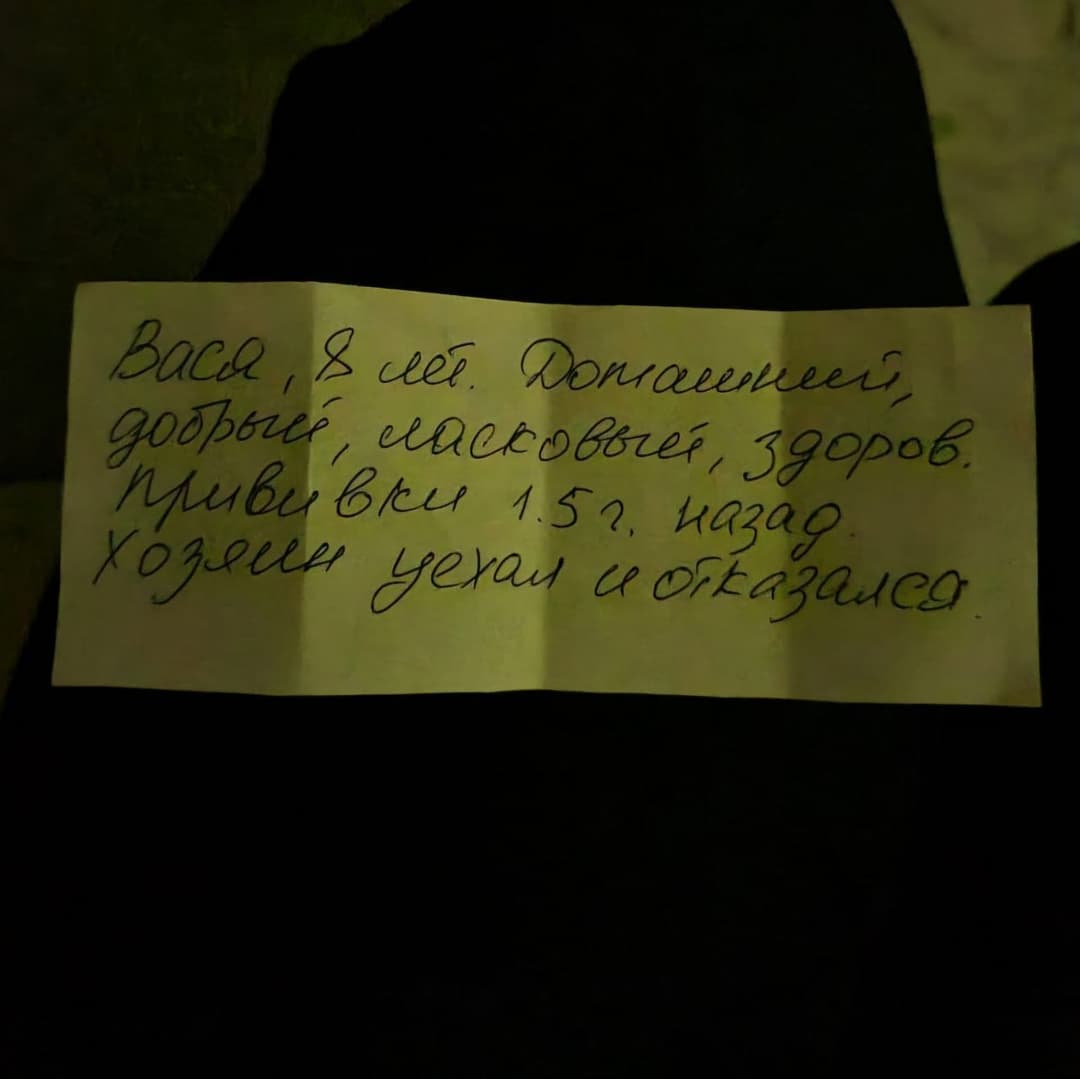 Вася, 8 лет. Домашний,
добрый, ласковый, здоров.
Прививки 1.5 г. назад.
Хозяин уехал и отказался.